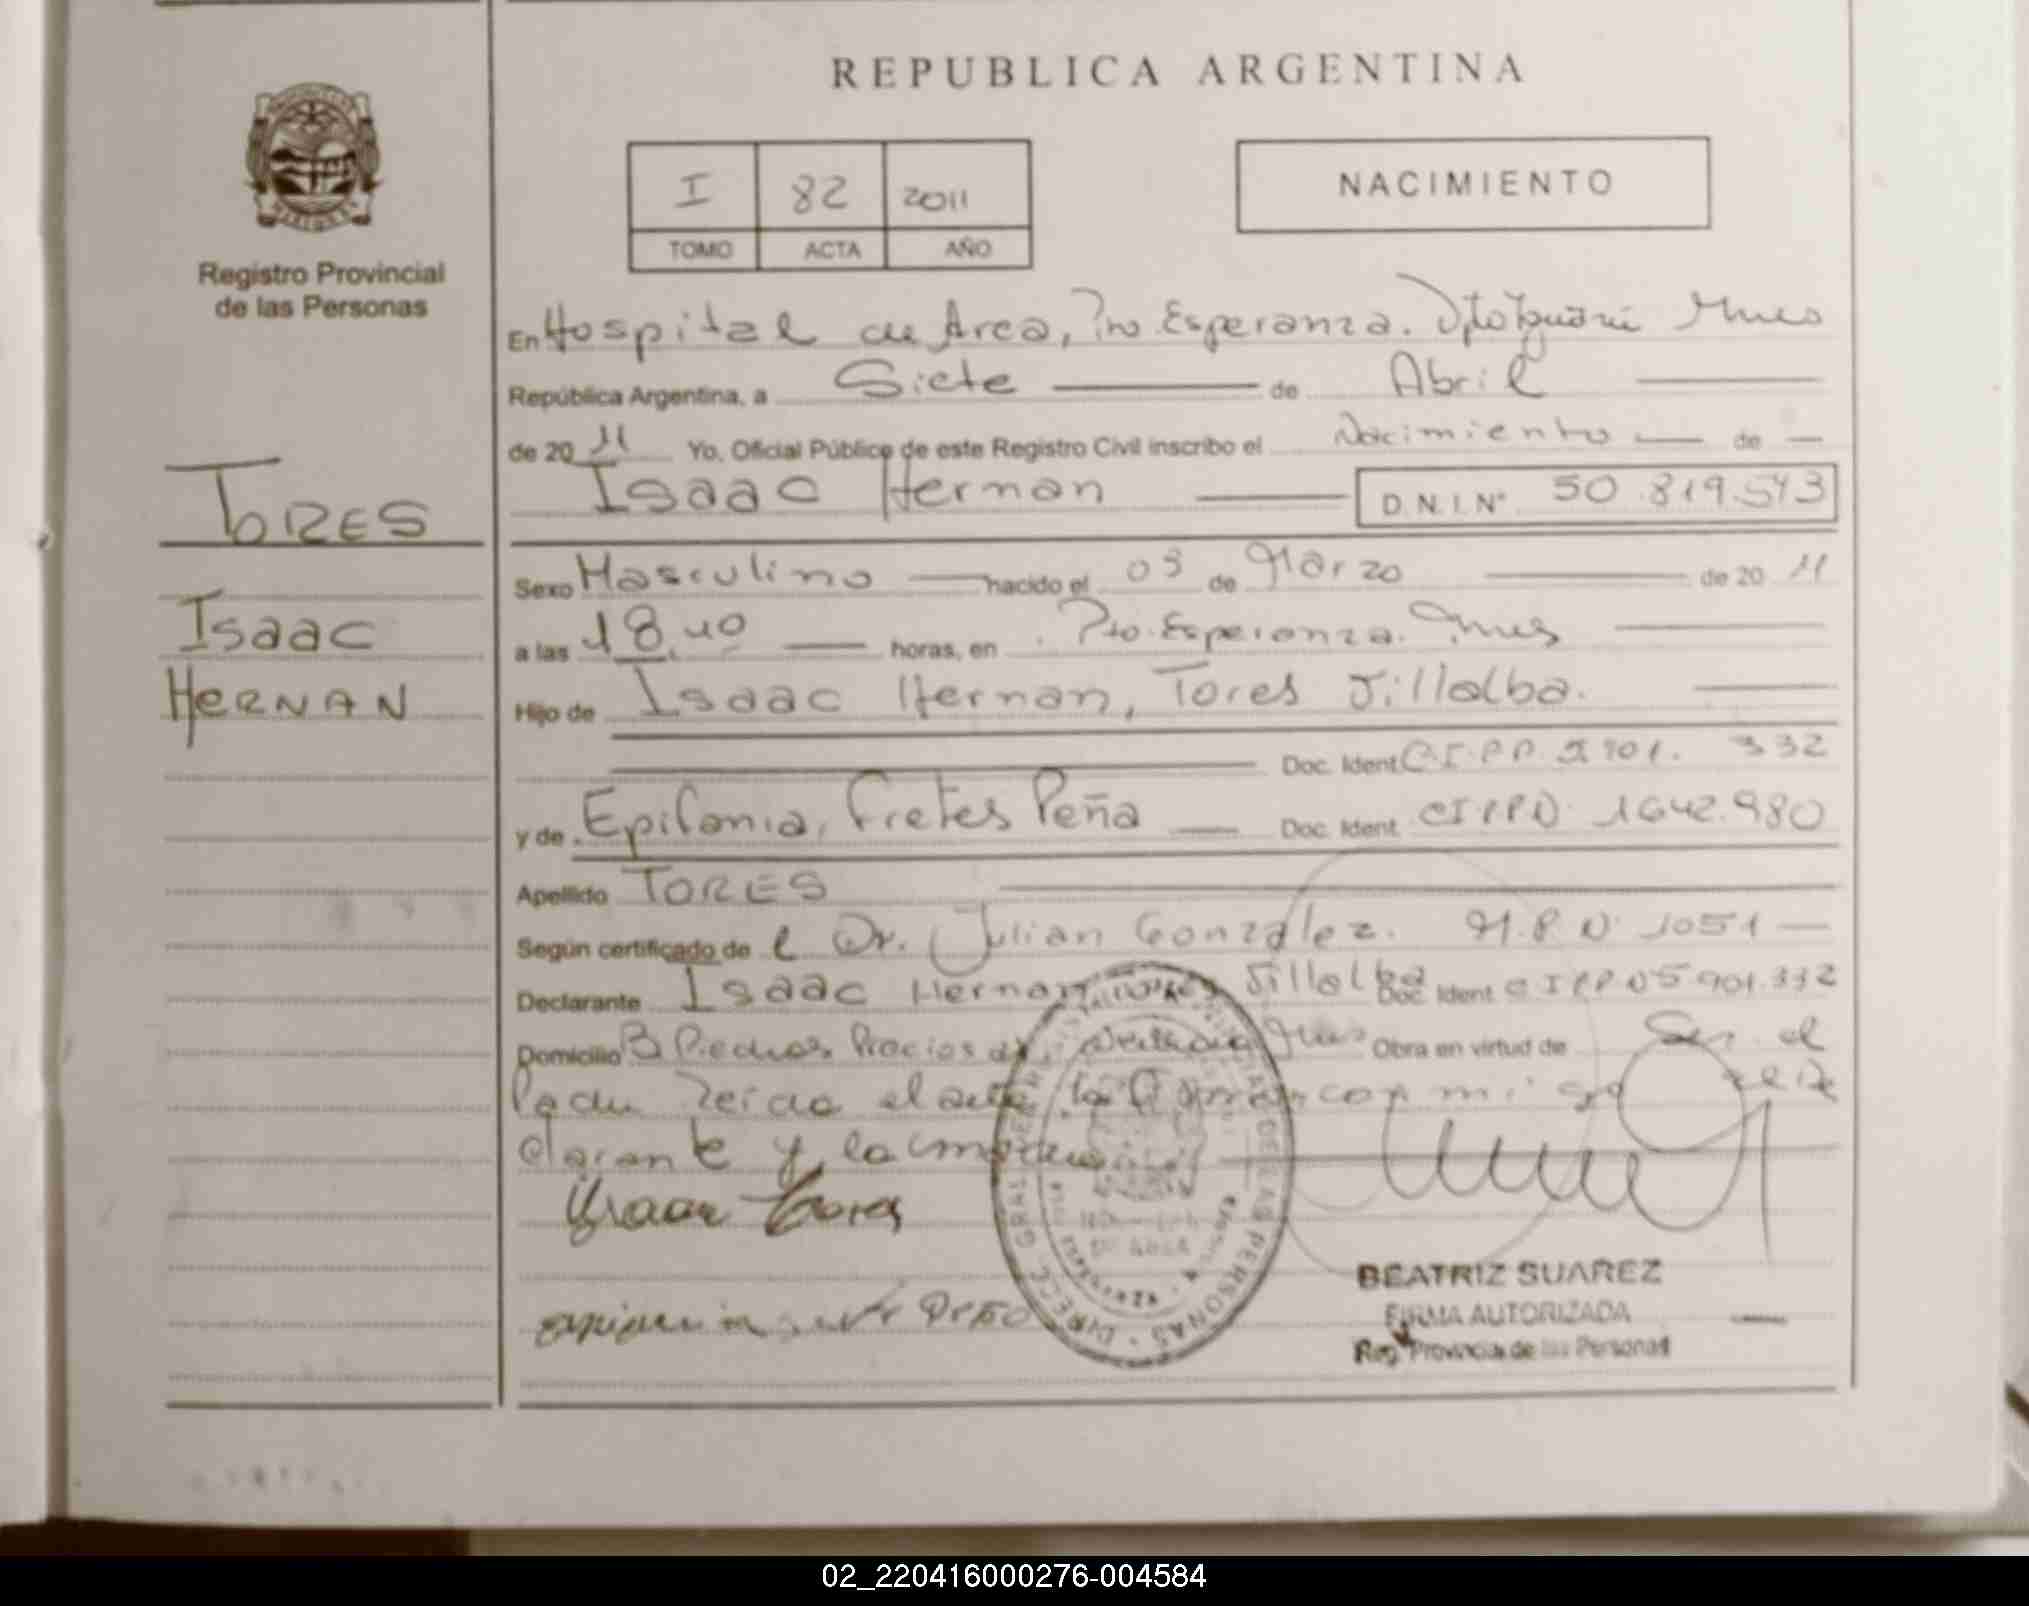 REPUBLICA ARGENTINA
I 82 2011
TOMO ACTA AÑO
NACIMIENTO
Registro Provincial
de las Personas
TORES
ISAAC
HERNAN
En Hospital de Area, Pto Esperanza. Dpto Iguazú Mnes
República Argentina, a Siete de Abril
de 20 11 Yo, Oficial Público de este Registro Civil inscribo el Nacimiento de
Isaac Hernan D.N.I.N° 50.819.543
Sexo Masculino nacido el 03 de Marzo de 20 11
a las 18,40 horas, en Pto. Esperanza. Mnes
Hijo de Isaac Hernan, Tores Villalba.
Doc. Ident C.I.P.P. 901.332
y de Epifania, Fretes Peña Doc. Ident. CIPPN 1642.980
Apellido TORES
Según certificado de l Dr. Julian Gonzalez. M.P.N° 1051
Declarante Isaac Hernan Tores Villalba Doc. Ident CIPPN 5901.332
Domicilio B Piedras Preciosas Obra en virtud de Ser el
Padre Leida el acta la firman con mi go el De
clarante y la madre
Isaac Tores
DIRECC GRAL DE LAS PERSONAS
BEATRIZ SUAREZ
FIRMA AUTORIZADA
Reg. Provincial de las Personas
02_220416000276-004584